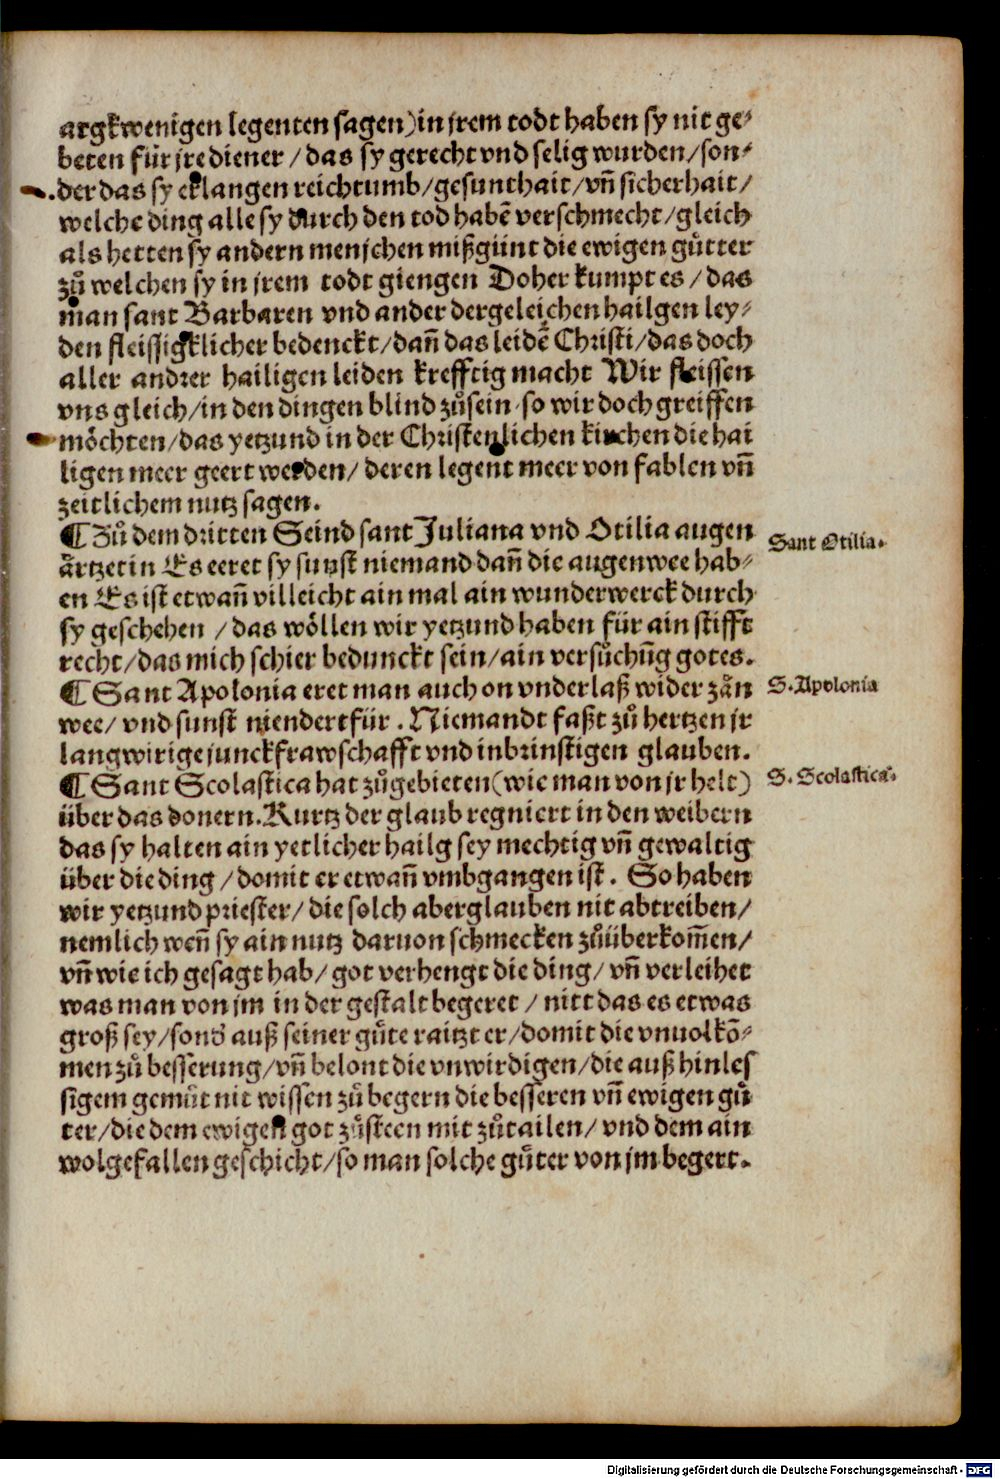 argkwenigen legenten sagen) in jrem todt haben sy nit ge⸗
beten für jre diener / das sy gerecht vnd selig wurden / son⸗
der das sy erlangen reichtumb / gesunthait / vn̄ sicherhait /
welche ding alle sy durch den tod habē verschmecht / gleich
als hetten sy andern menschen mißgünt die ewigen gůtter
zů welchen sy in jrem todt giengen Doher kumpt es / das
man sant Barbaren vnd ander dergeleichen hailgen ley⸗
den fleissigklicher bedenckt / dan̄ das leidē Christi / das doch
aller andrer hailigen leiden krefftig macht Wir fleissen
vns gleich / in den dingen blind zůsein so wir doch greiffen
möchten / das yetzund in der Christenlichen kirchen die hai
ligen meer geert werden / deren legent meer von fablen vn̄
zeitlichem nutz sagen.
¶ Zů dem dritten Seind sant Juliana vnd Otilia augen
ärtzetin Es eeret sy sunst niemand dan̄ die augenwee hab⸗
en Es ist etwan̄ villeicht ain mal ain wunderwerck durch
sy geschehen / das wöllen wir yetzund haben für ain stifft
recht / das mich schier bedunckt sein / ain versůchūg gotes.
¶ Sant Apolonia eret man auch on vnderlaß wider zän
wee / vnd sunst niendert für. Niemandt faßt zů hertzen jr
langwirige junckfrawschafft vnd inbrinstigen glauben.
¶ Sant Scolastica hat zůgebieten (wie man von jr helt)
über das donern. Kurtz der glaub regniert in den weibern
das sy halten ain yetlicher hailg sey mechtig vn̄ gewaltig
über die ding / domit er etwan̄ vmbgangen ist. So haben
wir yetzund priester / die solch aberglauben nit abtreiben /
nemlich wen̄ sy ain nutz daruon schmecken zůüberkom̄en /
vn̄ wie ich gesagt hab / got verhengt die ding / vn̄ verleihet
was man von jm in der gestalt begeret / nitt das es etwas
groß sey / sond̓ auß seiner gůte raitzt er / domit die vnuolkō⸗
men zů besserung / vn̄ belont die vnwirdigen / die auß hinles
sigem gemůt nit wissen zů begern die besseren vn̄ ewigen gů
ter / die dem ewigen got zůsteen mit zůtailen / vnd dem ain
wolgefallen geschicht / so man solche gůter von jm begert.
Sant Otilia.
S. Apolonia
S. Scolastica.
Digitalisierung gefördert durch die Deutsche Forschungsgemeinschaft - DFG